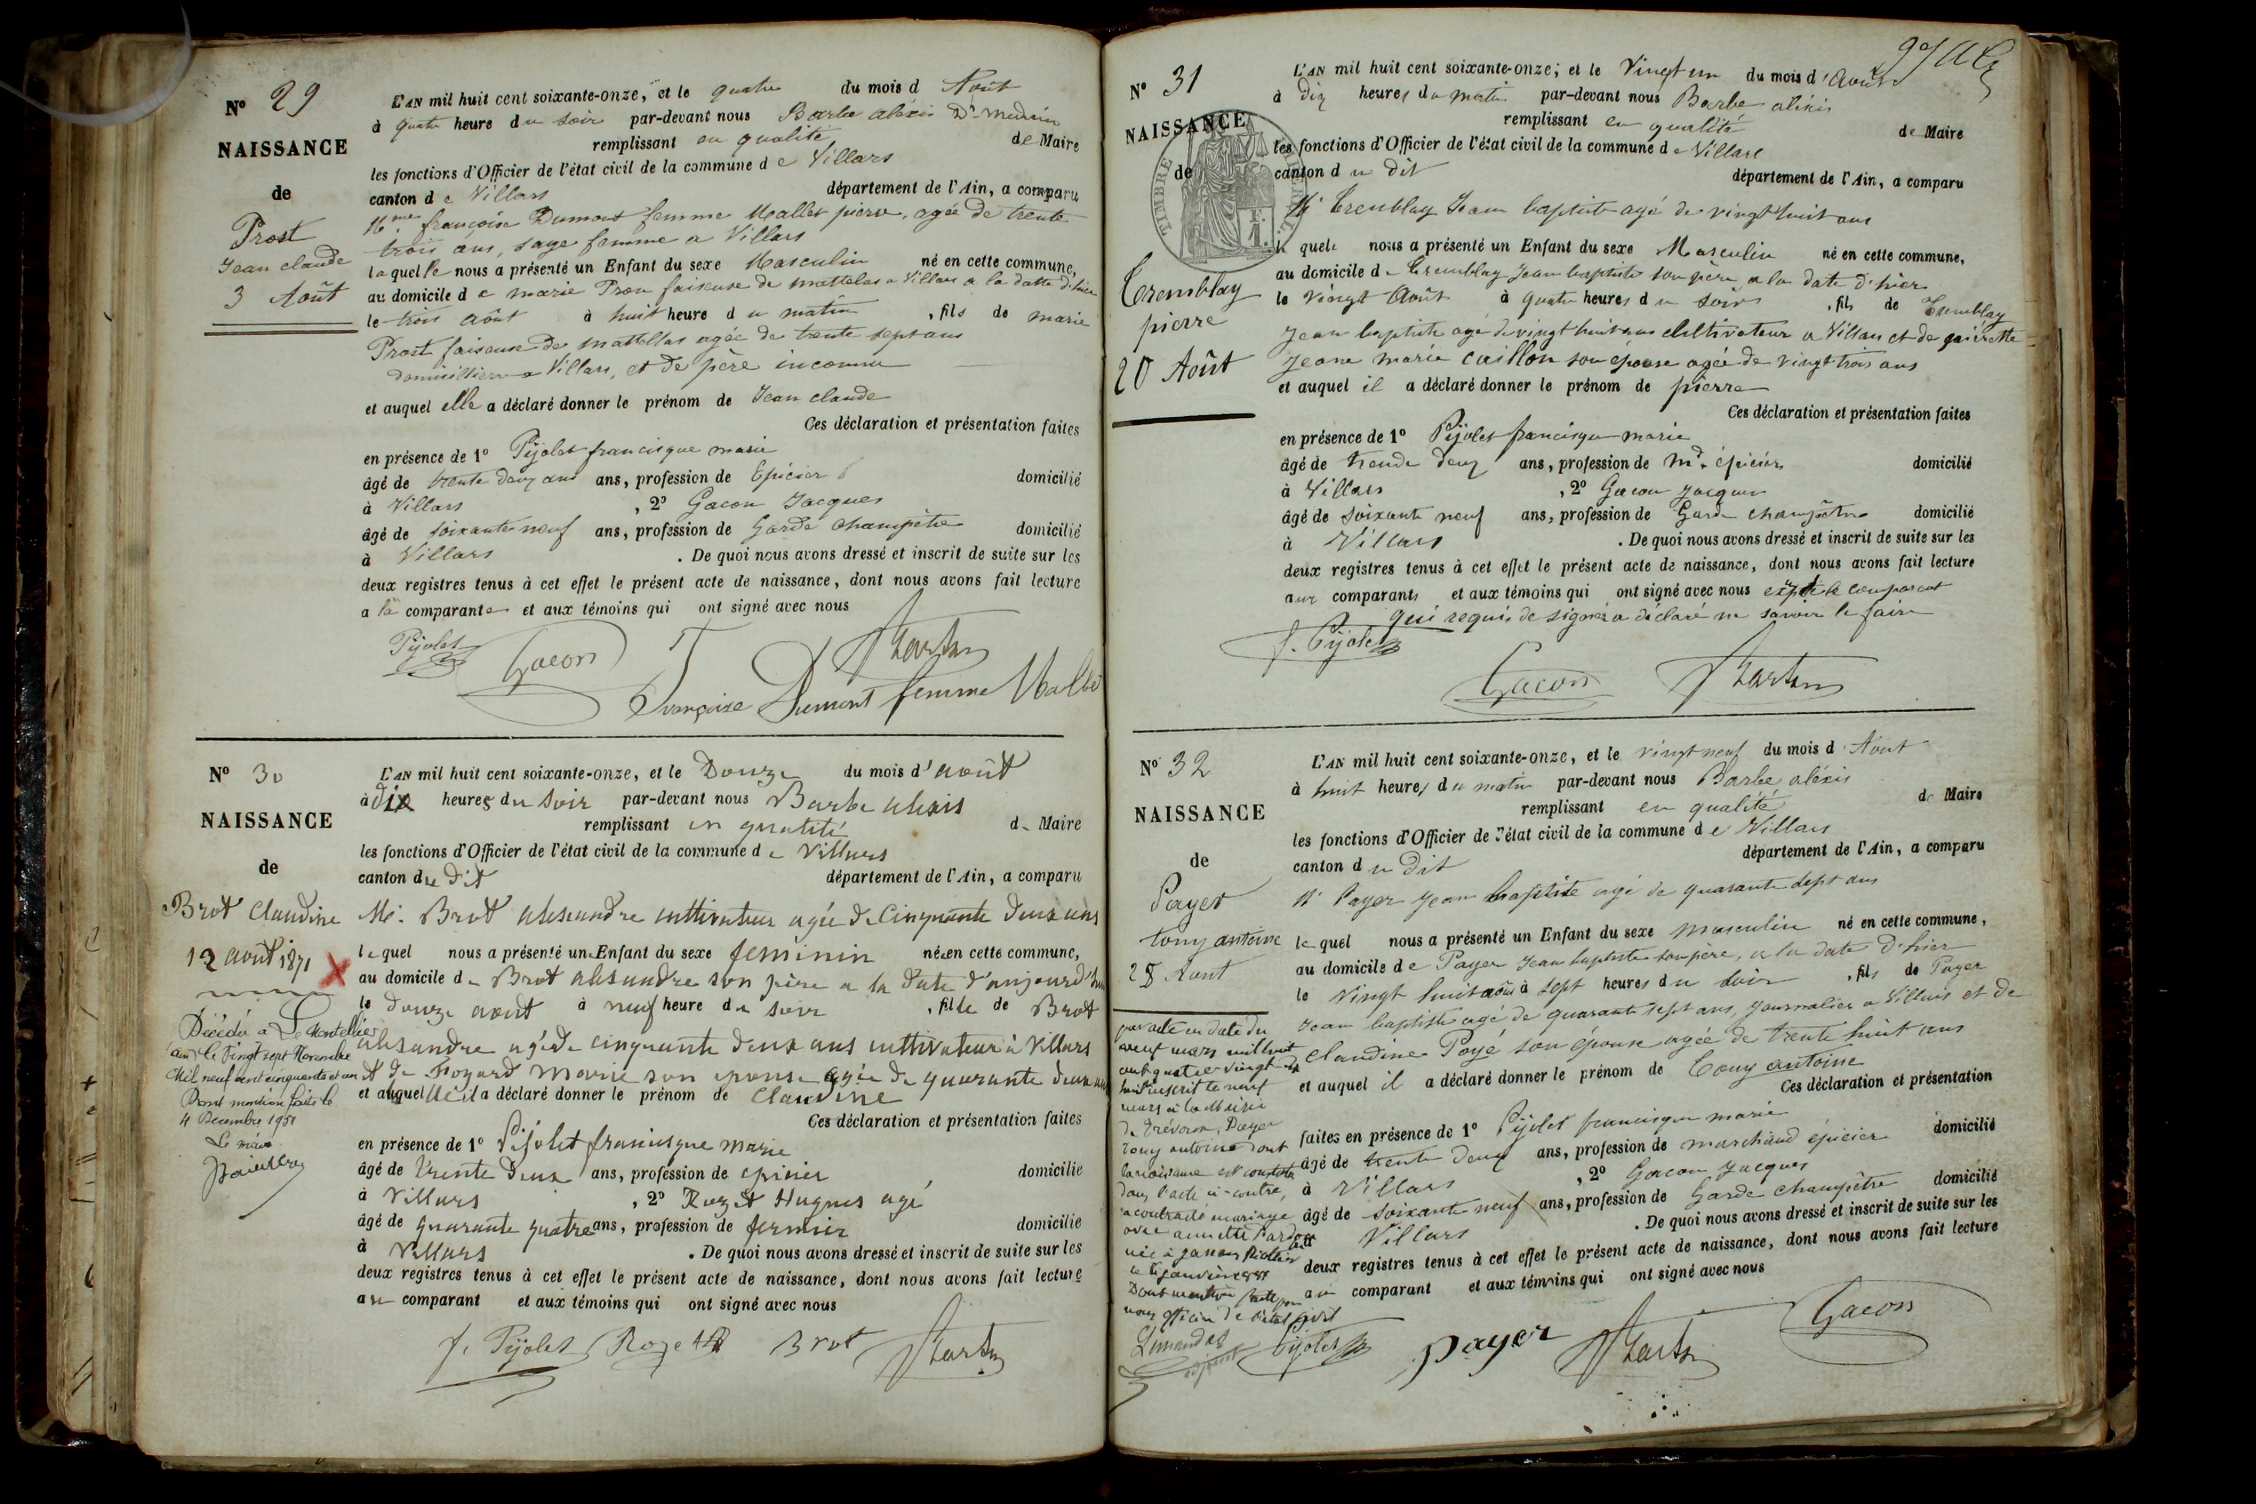 N° 29
NAISSANCE
de
Prost
Jean claude
3 Août
L'AN mil huit cent soixante-onze, et le quatre du mois d Août
à quatre heure du soir par-devant nous Barbe aléxis Dr Medecin
remplissant en qualité de Maire
les fonctions d'Officier de l'état civil de la commune de Villars
canton de Villars département de l'Ain, a comparu
Mme françoise Dumont femme Mallet pierre, agée de trente
trois ans, sage femme a Villars
laquelle nous a présenté un Enfant du sexe Masculin né en cette commune,
au domicile de marie Prost faiseuse de mattelas a Villars a la datte d'hier
le trois Août à huit heure du matin, fils de marie
Prost faiseuse de mattellas agée de trente sept ans
domicilliée a Villars, et de père inconnu
et auquel elle a déclaré donner le prénom de Jean claude
Ces déclaration et présentation faites
en présence de 1° Pijolet francisque marie
âgé de trente deux ans ans, profession de Epicier domicilié
à Villars, 2° Gacon Jacques
âgé de soixante neuf ans, profession de Garde champêtre domicilié
à Villars. De quoi nous avons dressé et inscrit de suite sur les
deux registres tenus à cet effet le présent acte de naissance, dont nous avons fait lecture
a la comparante et aux témoins qui ont signé avec nous
Pijolet
Gacon
Françoise Dumont femme Mallet
N° 30
NAISSANCE
de
Brot Claudine
12 août 1871
Décédée à Le Montellier
(Ain) le Vingt sept Novembre
Mil neuf cent cinquante et un
Dont mention faite le
4 Decembre 1951
Le maire
L'AN mil huit cent soixante-onze, et le Douze du mois d'août
à dix heures du soir par-devant nous Barbe alexis
remplissant en qualité de Maire
les fonctions d'Officier de l'état civil de la commune de Villars
canton du dit département de l'Ain, a comparu
Mr. Brot alexandre cultivateur agée de Cinquante deux ans
lequel nous a présenté une Enfant du sexe feminin née en cette commune,
au domicile de Brot alexandre son père a la date d'aujourd'hui
le douze août à neuf heure du soir, fille de Brot
alexandre agé de cinquante deux ans cultivateur à Villars
et de Noyard Marie son epouse agée de quarante deux ans
et auquel il a déclaré donner le prénom de Claudine
Ces déclaration et présentation faites
en présence de 1° Pijolet francisque marie
âgé de trente deux ans, profession de epicier domicilié
à Villars, 2° Rozet Hugues agé
âgé de quarante quatre ans, profession de fermier domicilié
à Villars. De quoi nous avons dressé et inscrit de suite sur les
deux registres tenus à cet effet le présent acte de naissance, dont nous avons fait lecture
au comparant et aux témoins qui ont signé avec nous
f. Pijolet Rozet Brot
N° 31
NAISSANCE
de
Tremblay
pierre
20 Août
TIMBRE
L'AN mil huit cent soixante-onze, et le Vingt un du mois d'Août
à dix heures du matin par-devant nous Barbe aléxis
remplissant en qualité de Maire
les fonctions d'Officier de l'état civil de la commune de Villars
canton du dit département de l'Ain, a comparu
Mr Tremblay Jean baptiste agé de vingt huit ans
le quel nous a présenté un Enfant du sexe Masculin né en cette commune,
au domicile de Tremblay Jean baptiste son père, a la date d'hier
le vingt Août à quatre heures du soir, fils de Tremblay
Jean baptiste agé de vingt huit ans cultivateur a Villars et de
Jeane marie Caillon son épouse agée de vingt trois ans
et auquel il a déclaré donner le prénom de pierre
Ces déclaration et présentation faites
en présence de 1° Pijolet francisque marie
âgé de trente deux ans, profession de Md épicier domicilié
à Villars, 2° Gacon Jacques
âgé de soixante neuf ans, profession de Garde champêtre domicilié
à Villars. De quoi nous avons dressé et inscrit de suite sur les
deux registres tenus à cet effet le présent acte de naissance, dont nous avons fait lecture
aux comparants et aux témoins qui ont signé avec nous excepté le comparant
qui requis de signer a déclaré ne savoir le faire
f. Pijolet
Gacon
N° 32
NAISSANCE
de
Payet
tony antoine
28 Aout
par acte en date du
neuf mars mil huit
cent quatre vingt
huit inscrit le neuf
mars à la Mairie
de Trévoux, Payer
Tony antoine dont
la naissance est constatée
dans l'acte ci-contre,
a contracté mariage
avec
née à
le janvier
Dont mention faite par
nous officier de l'état civil
L'AN mil huit cent soixante-onze, et le vingt neuf du mois d Aout
à huit heures du matin par-devant nous Barbe aléxis
remplissant en qualité de Maire
les fonctions d'Officier de l'état civil de la commune de Villars
canton du dit département de l'Ain, a comparu
Mr Payer Jean baptiste agé de quarante sept ans
lequel nous a présenté un Enfant du sexe masculin né en cette commune,
au domicile de Payer Jean baptiste son père, a la date d'hier
le vingt huit août à sept heures du soir, fils de Payer
Jean baptiste agé de quarante sept ans, Journalier a Villars et de
Claudine Poyé son épouse agée de trente huit ans
et auquel il a déclaré donner le prénom de Tony antoine
Ces déclaration et présentation
faites en présence de 1° Pijolet francisque marie
âgé de trente deux ans, profession de marchand épicier domicilié
à Villars, 2° Gacon Jacques
âgé de soixante neuf ans, profession de Garde champêtre domicilié
Villars. De quoi nous avons dressé et inscrit de suite sur les
deux registres tenus à cet effet le présent acte de naissance, dont nous avons fait lecture
au comparant et aux témoins qui ont signé avec nous
Pijolet payer Gacon